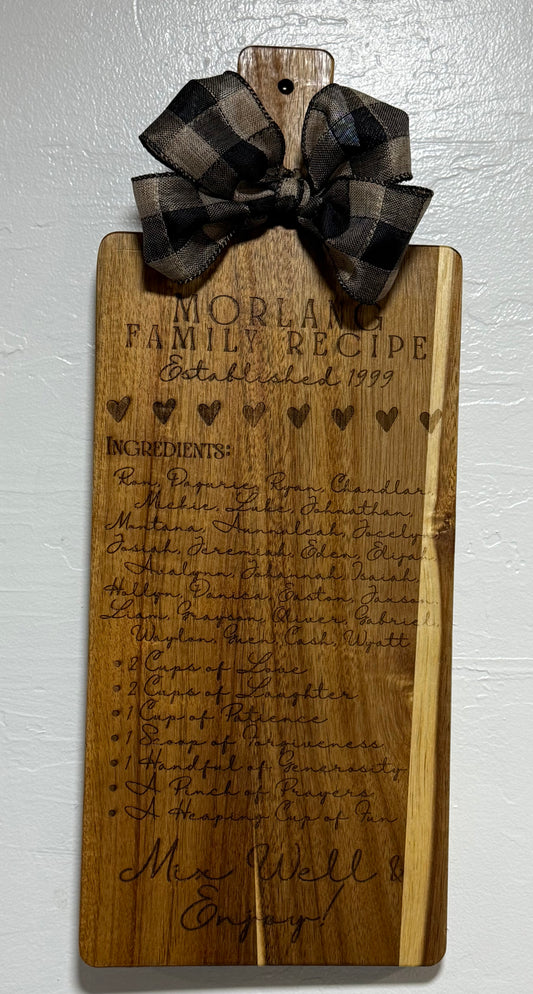 MORLANG
FAMILY RECIPE
Established 1999
INGREDIENTS:
Ron, Dagurie, Ryan, Chandlar,
Mckie, Luke, Johnathan,
Montana, Aunnaleah, Jocelyn
Josiah, Jeremiah, Eden, Elijah
Avalynn, Johannah, Isaiah,
Hollyn, Danica, Easton, Jaxson,
Liam, Grayson, Oliver, Gabriel,
Waylon, Gwen, Cash, Wyatt
• 2 Cups of Love
• 2 Cups of Laughter
• 1 Cup of Patience
• 1 Scoop of Forgiveness
• 1 Handful of Generosity
• A Pinch of Prayers
• A Heaping Cup of Fun
Mix Well &
Enjoy!